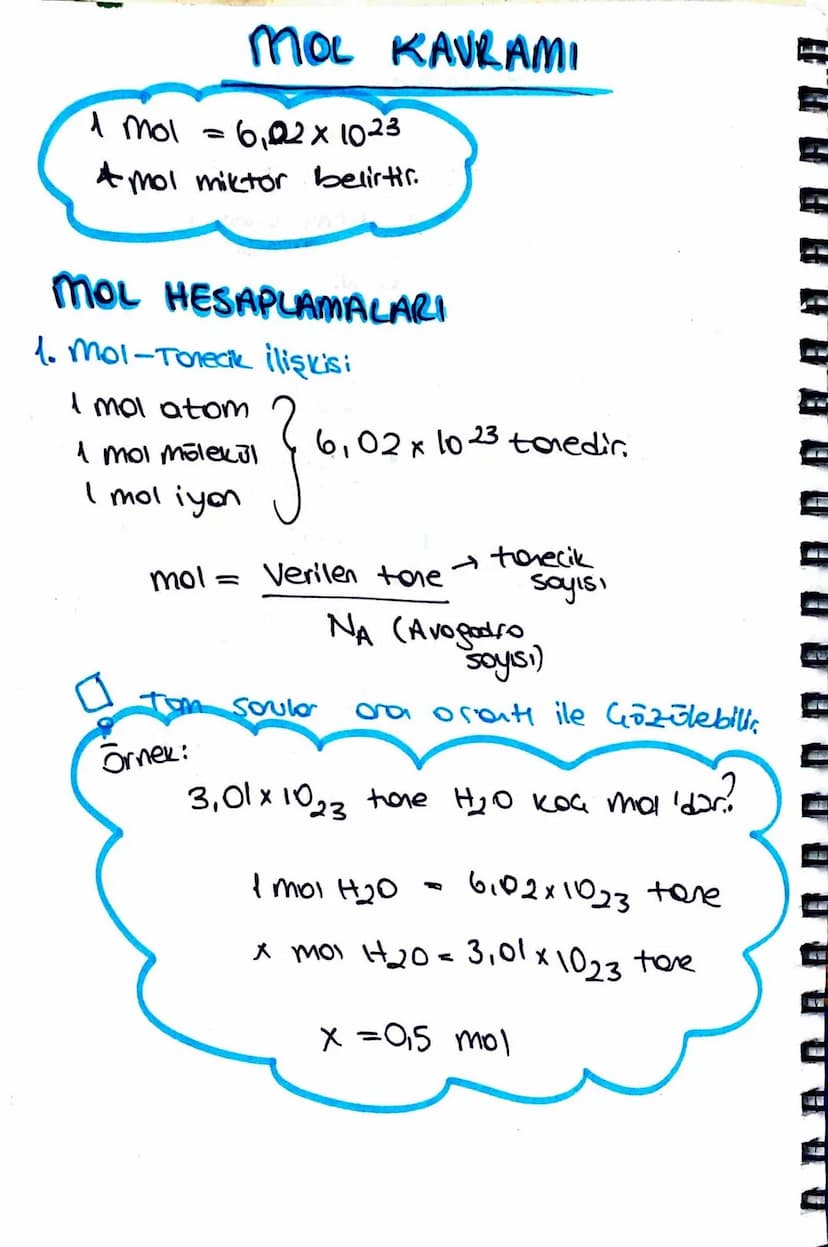 MOL KAVRAMI
1 mol = 6,02 x 10²³
* mol miktar belirtir.
MOL HESAPLAMALARI
1. Mol-Tanecik ilişkisi
1 mol atom
1 mol mölekül
1 mol iyon
6,02 x 10²³ tanedir.
mol = Verilen tane → tanecik sayısı
N_A (Avogadro
sayısı)
Tüm sorular oran orantı ile Çözülebilir.
Örnek:
3,01 x 10₂₃ tane H₂O kaç mol'dür?
1 mol H₂O = 6,02 x 10₂₃ tane
x mol H₂O = 3,01 x 10₂₃ tane
x = 0,5 mol